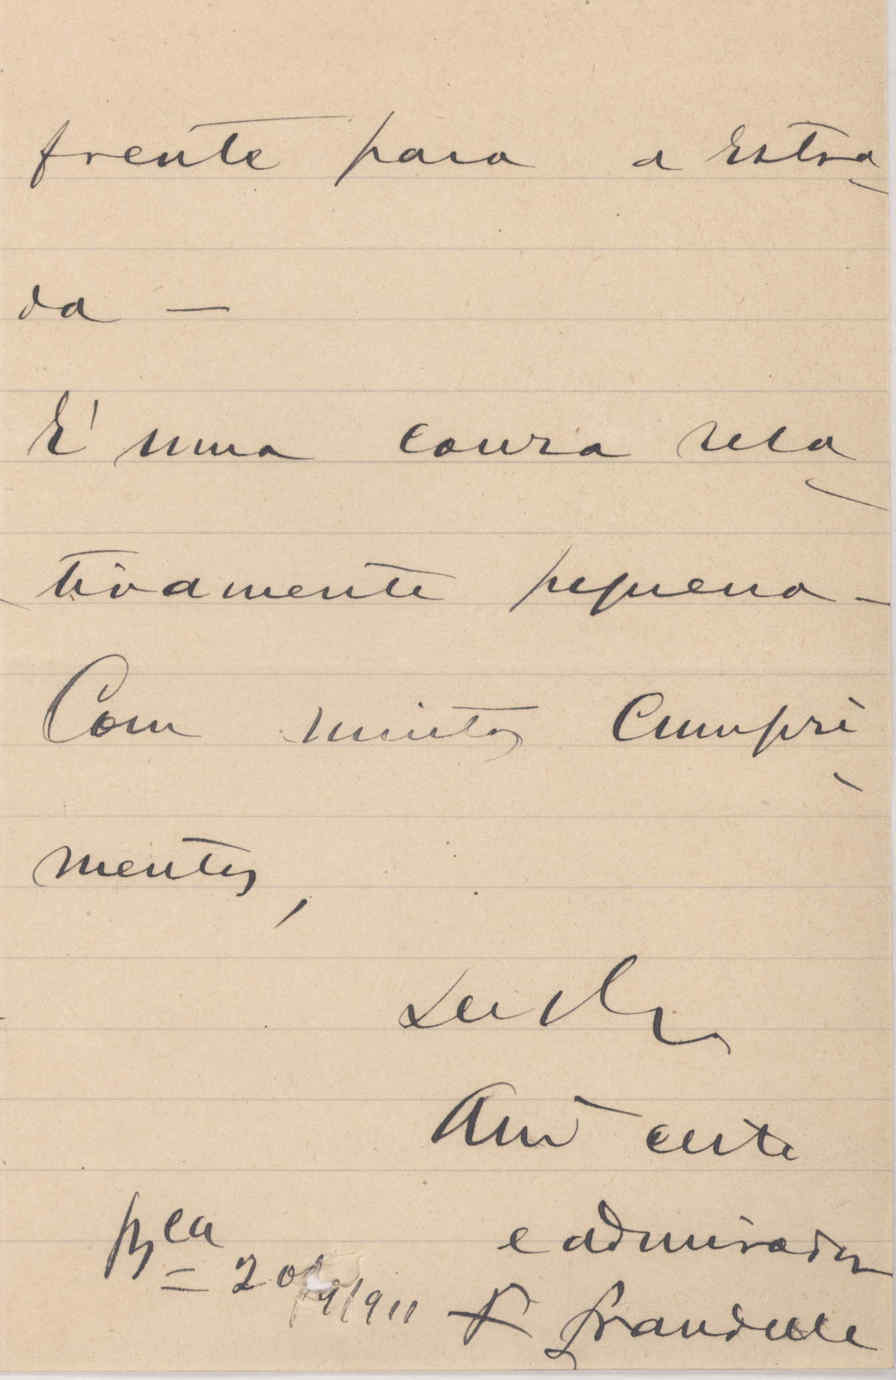 frente para a Estra_
da —
E' uma cousa rela_
tivamente pequena —
Com muitos Cumpri_
mentos,
Amº certo
e admirador
Grandella